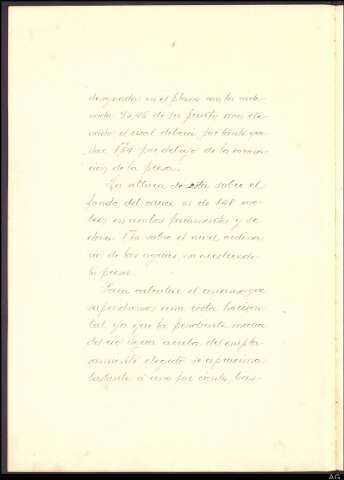 designada en el plano con la orde-
nada 42,46 de su punto mas ele-
vado el cual deberá por tanto que-
dar 1,54 por debajo de la corona-
ción de la presa.
La altura de esta sobre el
fondo del cauce es de 1,98 me-
tros en ambos paramentos y se
eleva 1,70 sobre el nivel ordina-
rio de las aguas no existiendo
la presa.
Para calcular el remanso que
supondremos una cota horizon-
tal ya que la pendiente media
del rio agua arriba del empla-
zamiento elegido se aproxima
bastante á uno por ciento, bas-
AG